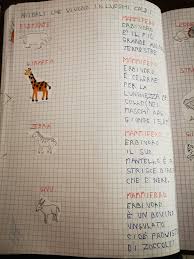 ANIMALI CHE VIVONO IN LUOGHI CALDI
ELEFANTE
MAMMIFERO
ERBIVORO
È IL PIÙ
GRANDE ANIMALE
TERRESTRE
GIRAFFA
MAMMIFERO
ERBIVORO
È CELEBRE
PER LA
LUNGHEZZA DEL
COLLO
MASCHI
ZEBRA
MAMMIFERO
ERBIVORO
IL SUO
MANTELLO È A
STRISCE BIANCHE
E NERE
GNU
MAMMIFERO
ERBIVORO
È UN BOVINO
UNGULATO
CIOÈ PROVVISTO
DI ZOCCOLI